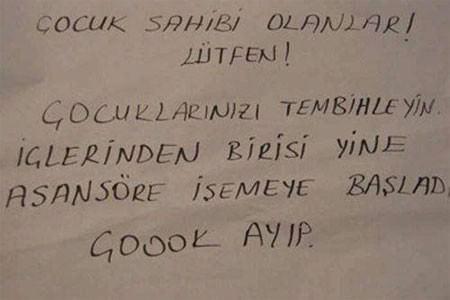 ÇOCUK SAHİBİ OLANLAR!
LÜTFEN!
ÇOCUKLARINIZI TEMBİHLEYİN.
İÇLERİNDEN BİRİSİ YİNE
ASANSÖRE İŞEMEYE BAŞLAD
ÇOOOK AYIP.